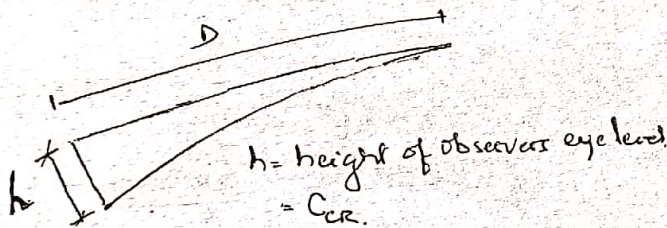 D
h
h = height of observers eye level
= C_CR.